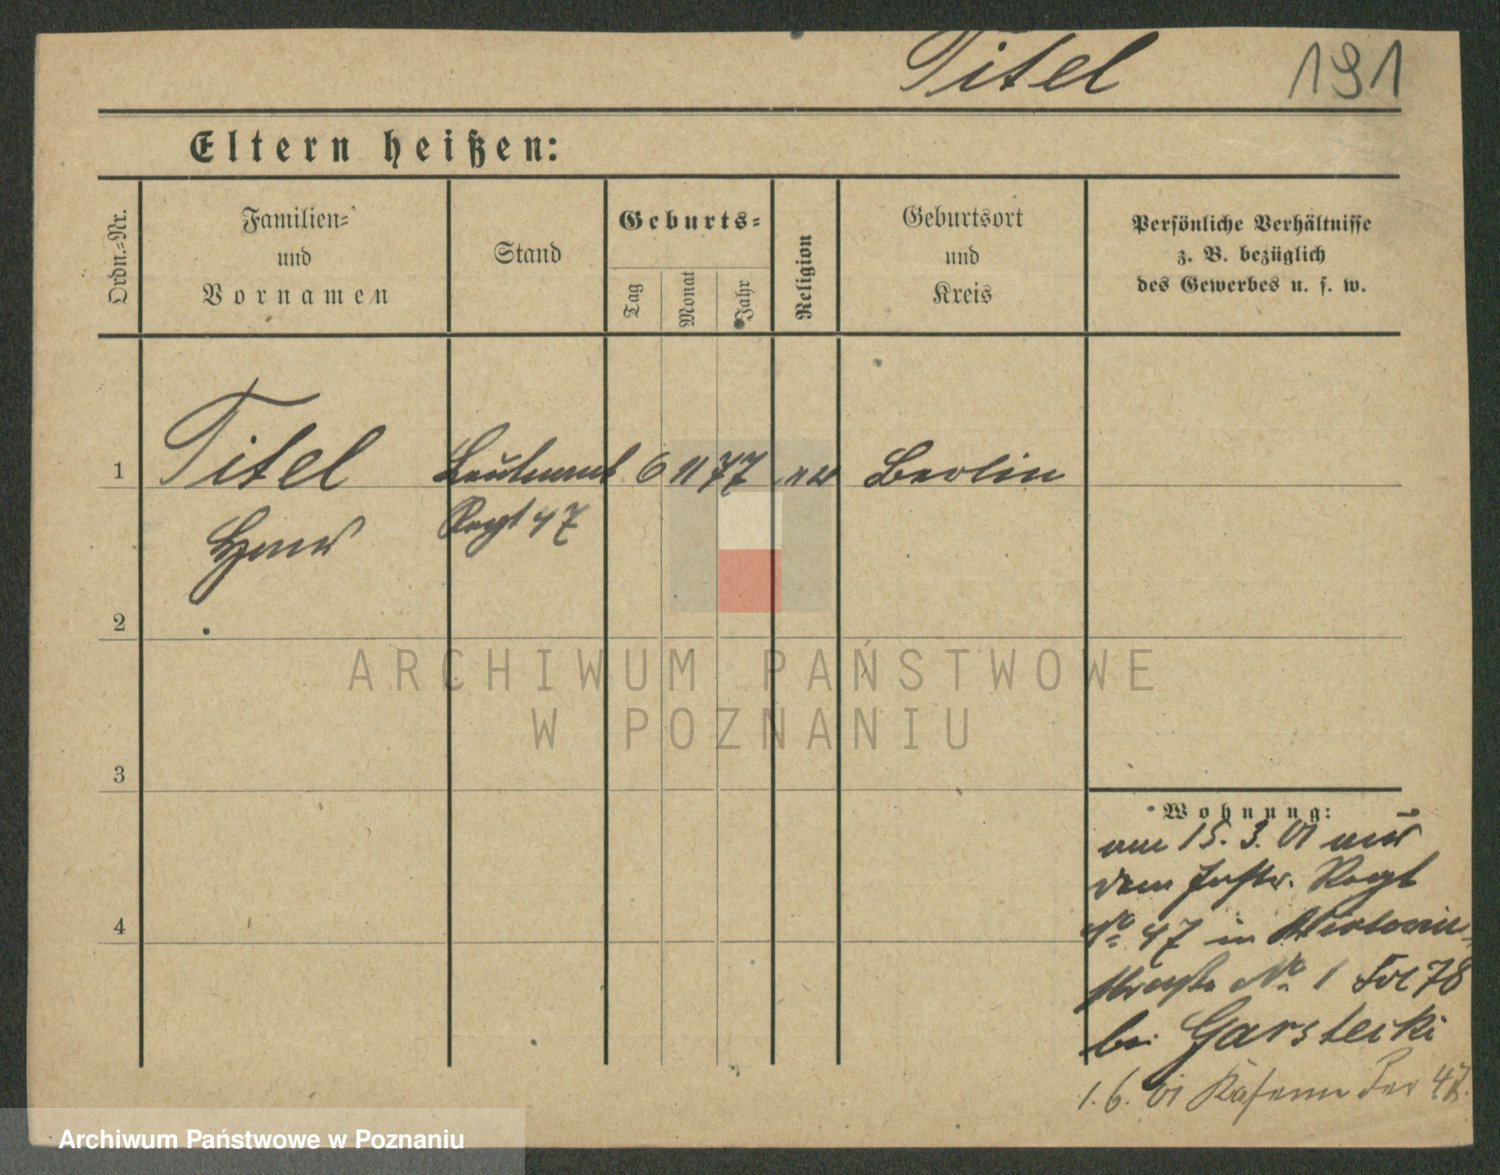 Titel 191
Eltern heißen:
Ordn.=Nr.
Familien=
und
Vornamen
Stand
Geburts=
Tag
Monat
Jahr
Religion
Geburtsort
und
Kreis
Persönliche Verhältnisse
z. B. bezüglich
des Gewerbes u. s. w.
1 Titel Leutnant 6 11 77 ev Berlin
Regt 47
2
3
4
Wohnung:
15. 3. 01 aus
dem Inftr. Regt
No 47 in
No 1 Fol 78
bei Garstecki
1. 6. 01 47.
ARCHIWUM PAŃSTWOWE
W POZNANIU
Archiwum Państwowe w Poznaniu